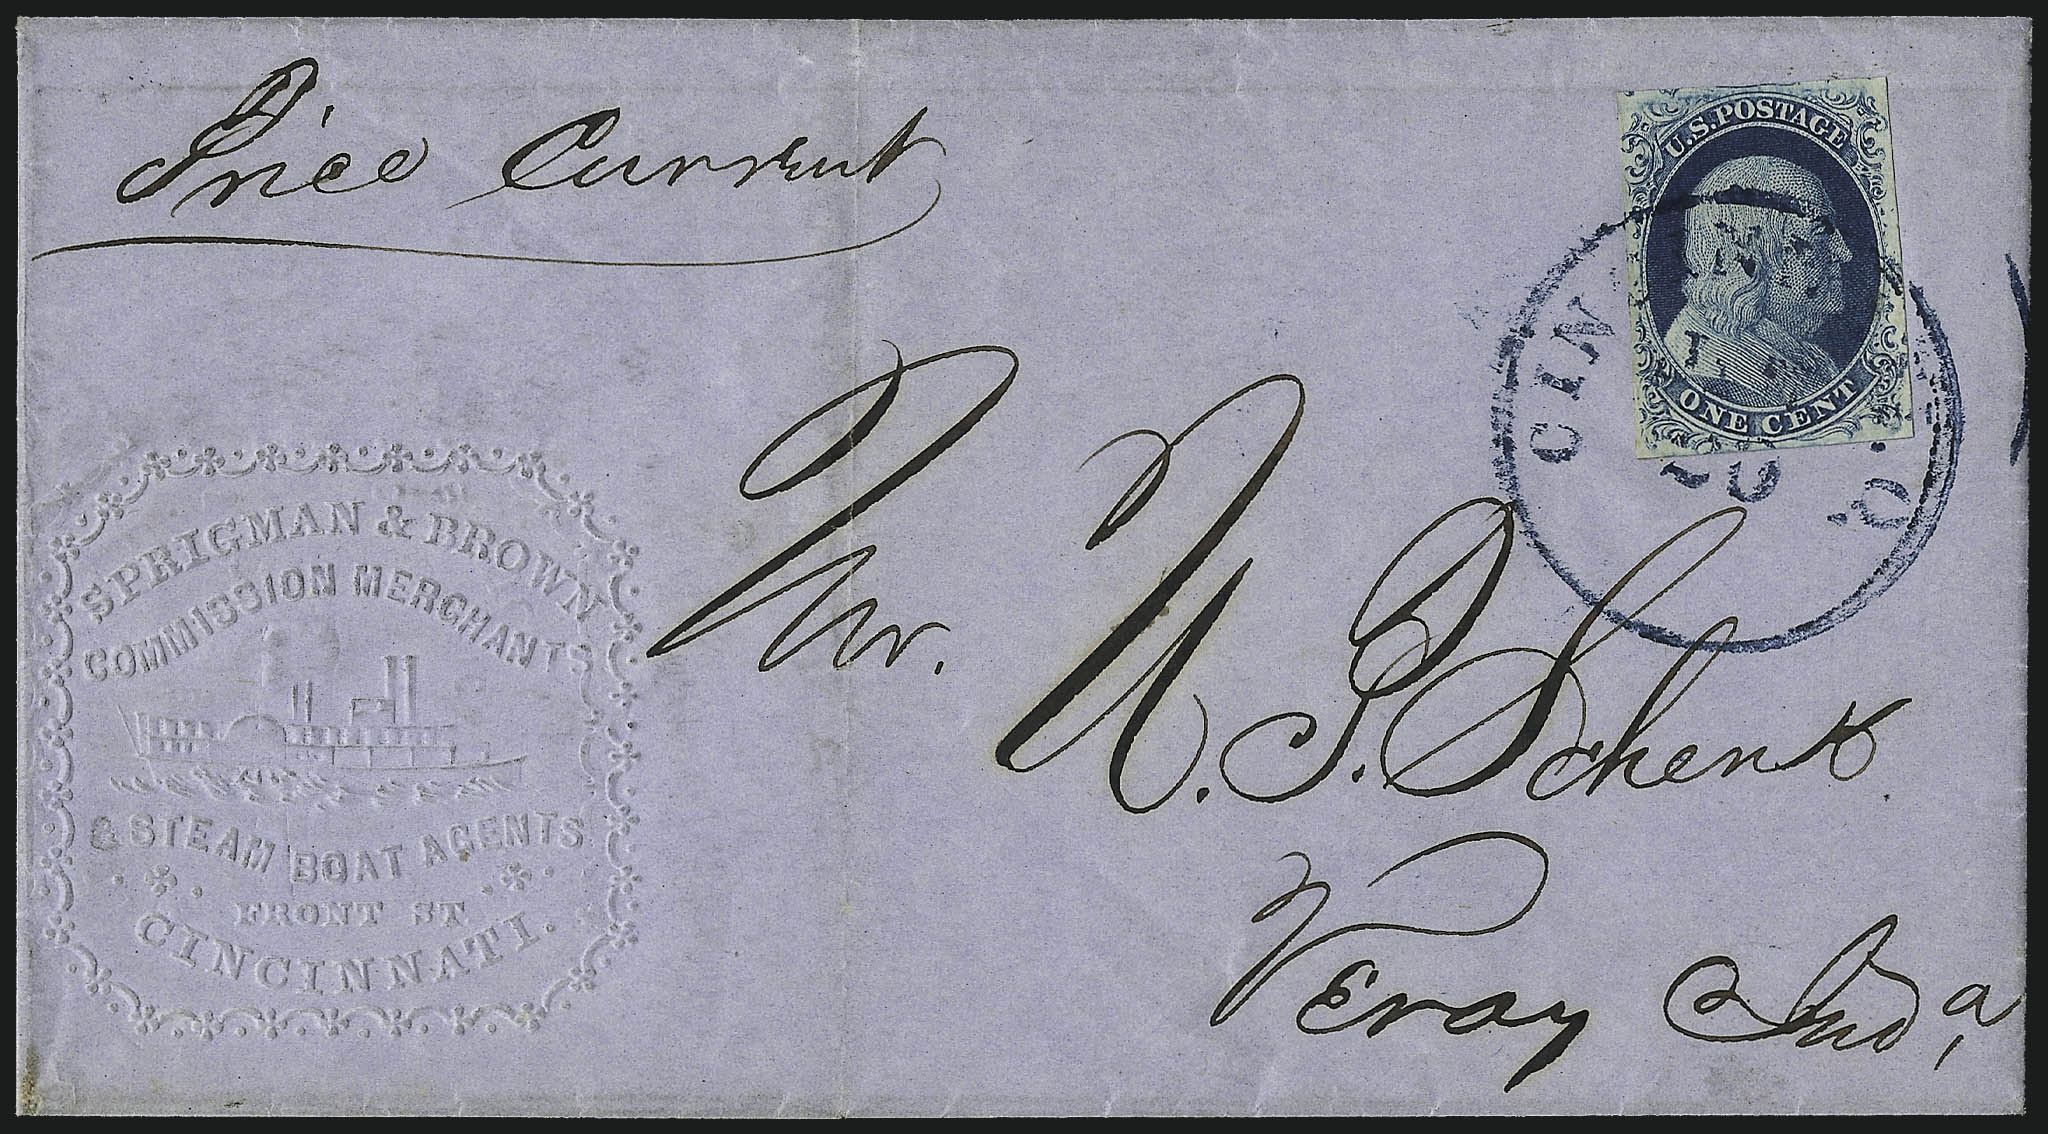 Price Current
U.S. POSTAGE
ONE CENT
CIN
10
O.
SPRIGMAN & BROWN
COMMISSION MERCHANTS
& STEAM BOAT AGENTS
FRONT ST
CINCINNATI.
Mr. U. P. Schenk
Vevay Inda,